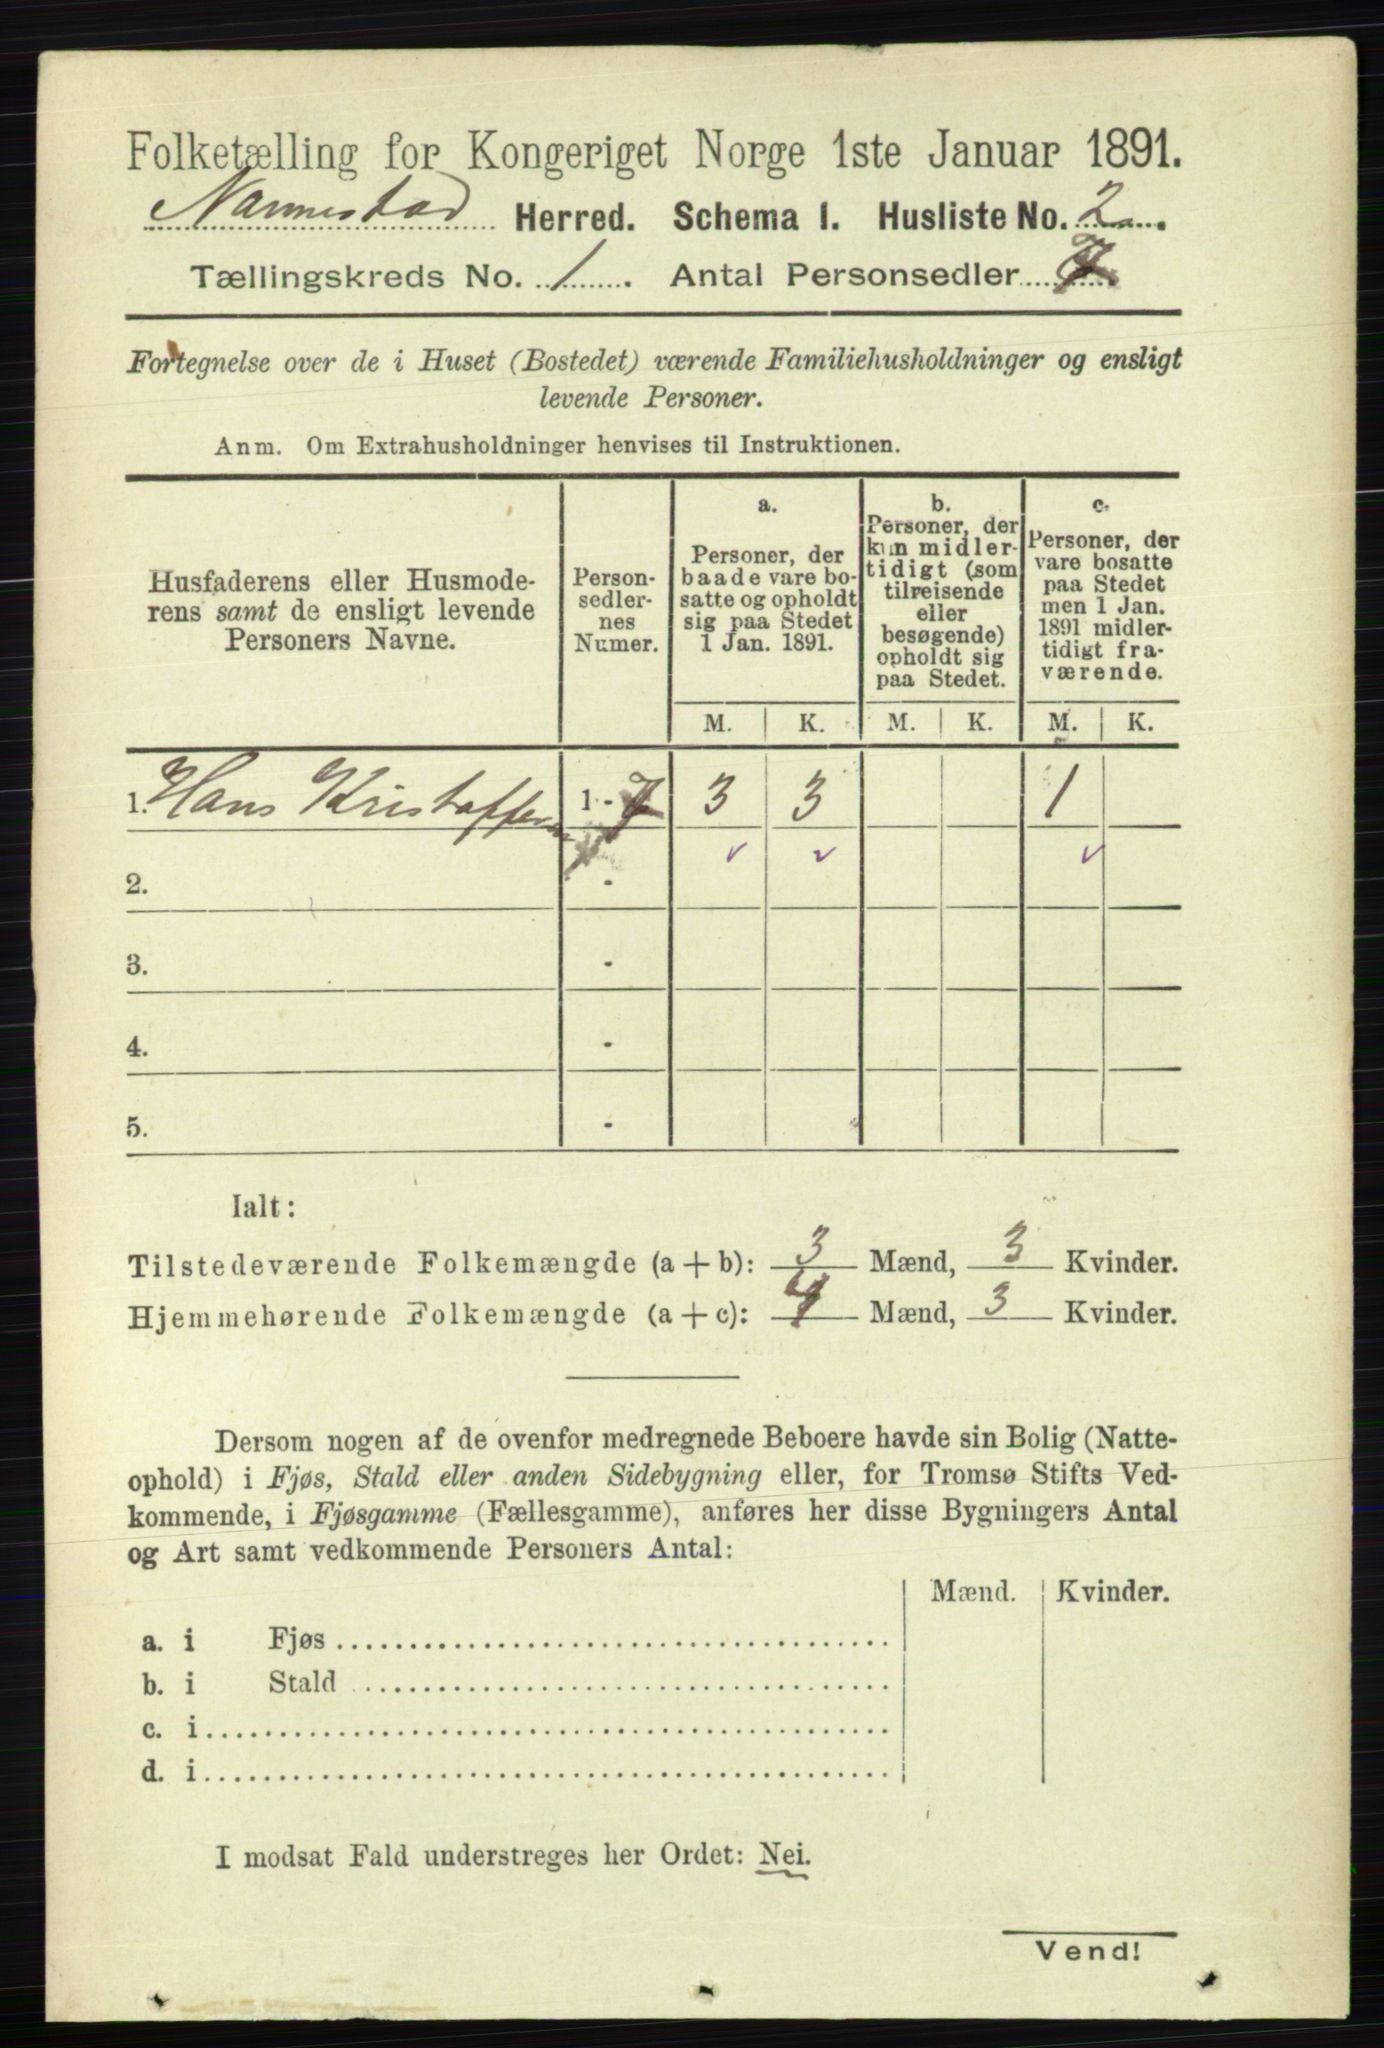 Folketælling for Kongeriget Norge 1ste Januar 1891.
Nannestad Herred. Schema 1. Husliste No. 2
Tællingskreds No. 1. Antal Personsedler 7
Fortegnelse over de i Huset (Bostedet) værende Familiehusholdninger og ensligt
levende Personer.
Anm. Om Extrahusholdninger henvises til Instruktionen.
Husfaderens eller Husmode-
rens samt de ensligt levende
Personers Navne.
Person-
sedler-
nes
Numer.
a.
Personer, der
baade vare bo-
satte og opholdt
sig paa Stedet
1 Jan. 1891.
b.
Personer, der
kun midler-
tidigt (som
tilreisende
eller
besøgende)
opholdt sig
paa Stedet.
c.
Personer, der
vare bosatte
paa Stedet
men 1 Jan.
1891 midler-
tidigt fra-
værende.
M. K. M. K. M. K.
1. Hans Kristoffersen 1 - 7 3 3 1
2. -
3. -
4. -
5. -
Ialt:
Tilstedeværende Folkemængde (a + b): 3 Mænd, 3 Kvinder.
Hjemmehørende Folkemængde (a + c): 4 Mænd, 3 Kvinder.
Dersom nogen af de ovenfor medregnede Beboere havde sin Bolig (Natte-
ophold) i Fjøs, Stald eller anden Sidebygning eller, for Tromsø Stifts Ved-
kommende, i Fjøsgamme (Fællesgamme), anføres her disse Bygningers Antal
og Art samt vedkommende Personers Antal:
Mænd. Kvinder.
a. i Fjøs
b. i Stald
c. i
d. i
I modsat Fald understreges her Ordet: Nei.
Vend!